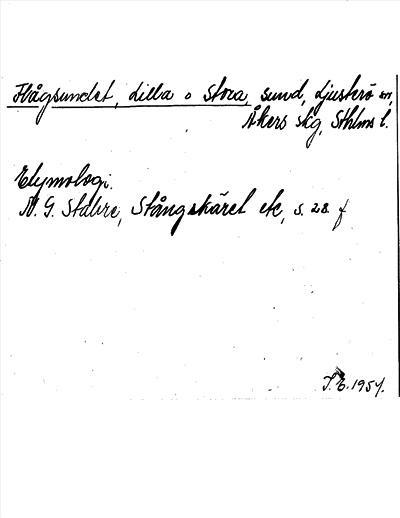 Flågsundet, Lilla o Stora, sund, Ljusterö sn,
Åkers skg, Sthlms l.
Etymologi.
N. G. Stahre, Stångskäret etc, s. 28 f
1957.